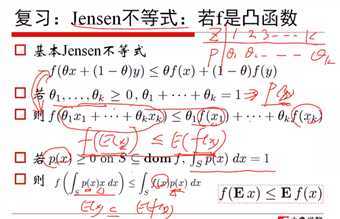 复习：Jensen不等式：若f是凸函数
Z 1 2 3 --- k
P θ₁ θ₂ --- θk
基本Jensen不等式
f(θx + (1 − θ)y) ≤ θf(x) + (1 − θ)f(y)
若 θ₁, . . . , θₖ ≥ 0, θ₁ + · · · + θₖ = 1 → P(x)
则 f(θ₁x₁ + · · · + θₖxₖ) ≤ θ₁f(x₁) + · · · + θₖf(xₖ)
f(E(x)) ≤ E(f(x))
若 p(x) ≥ 0 on S ⊆ dom f, ∫ₛ p(x) dx = 1
则 f(∫ₛ p(x)x dx) ≤ ∫ₛ f(x)p(x) dx
f(E x) ≤ E f(x)
E(x) ≤ E(f(x))